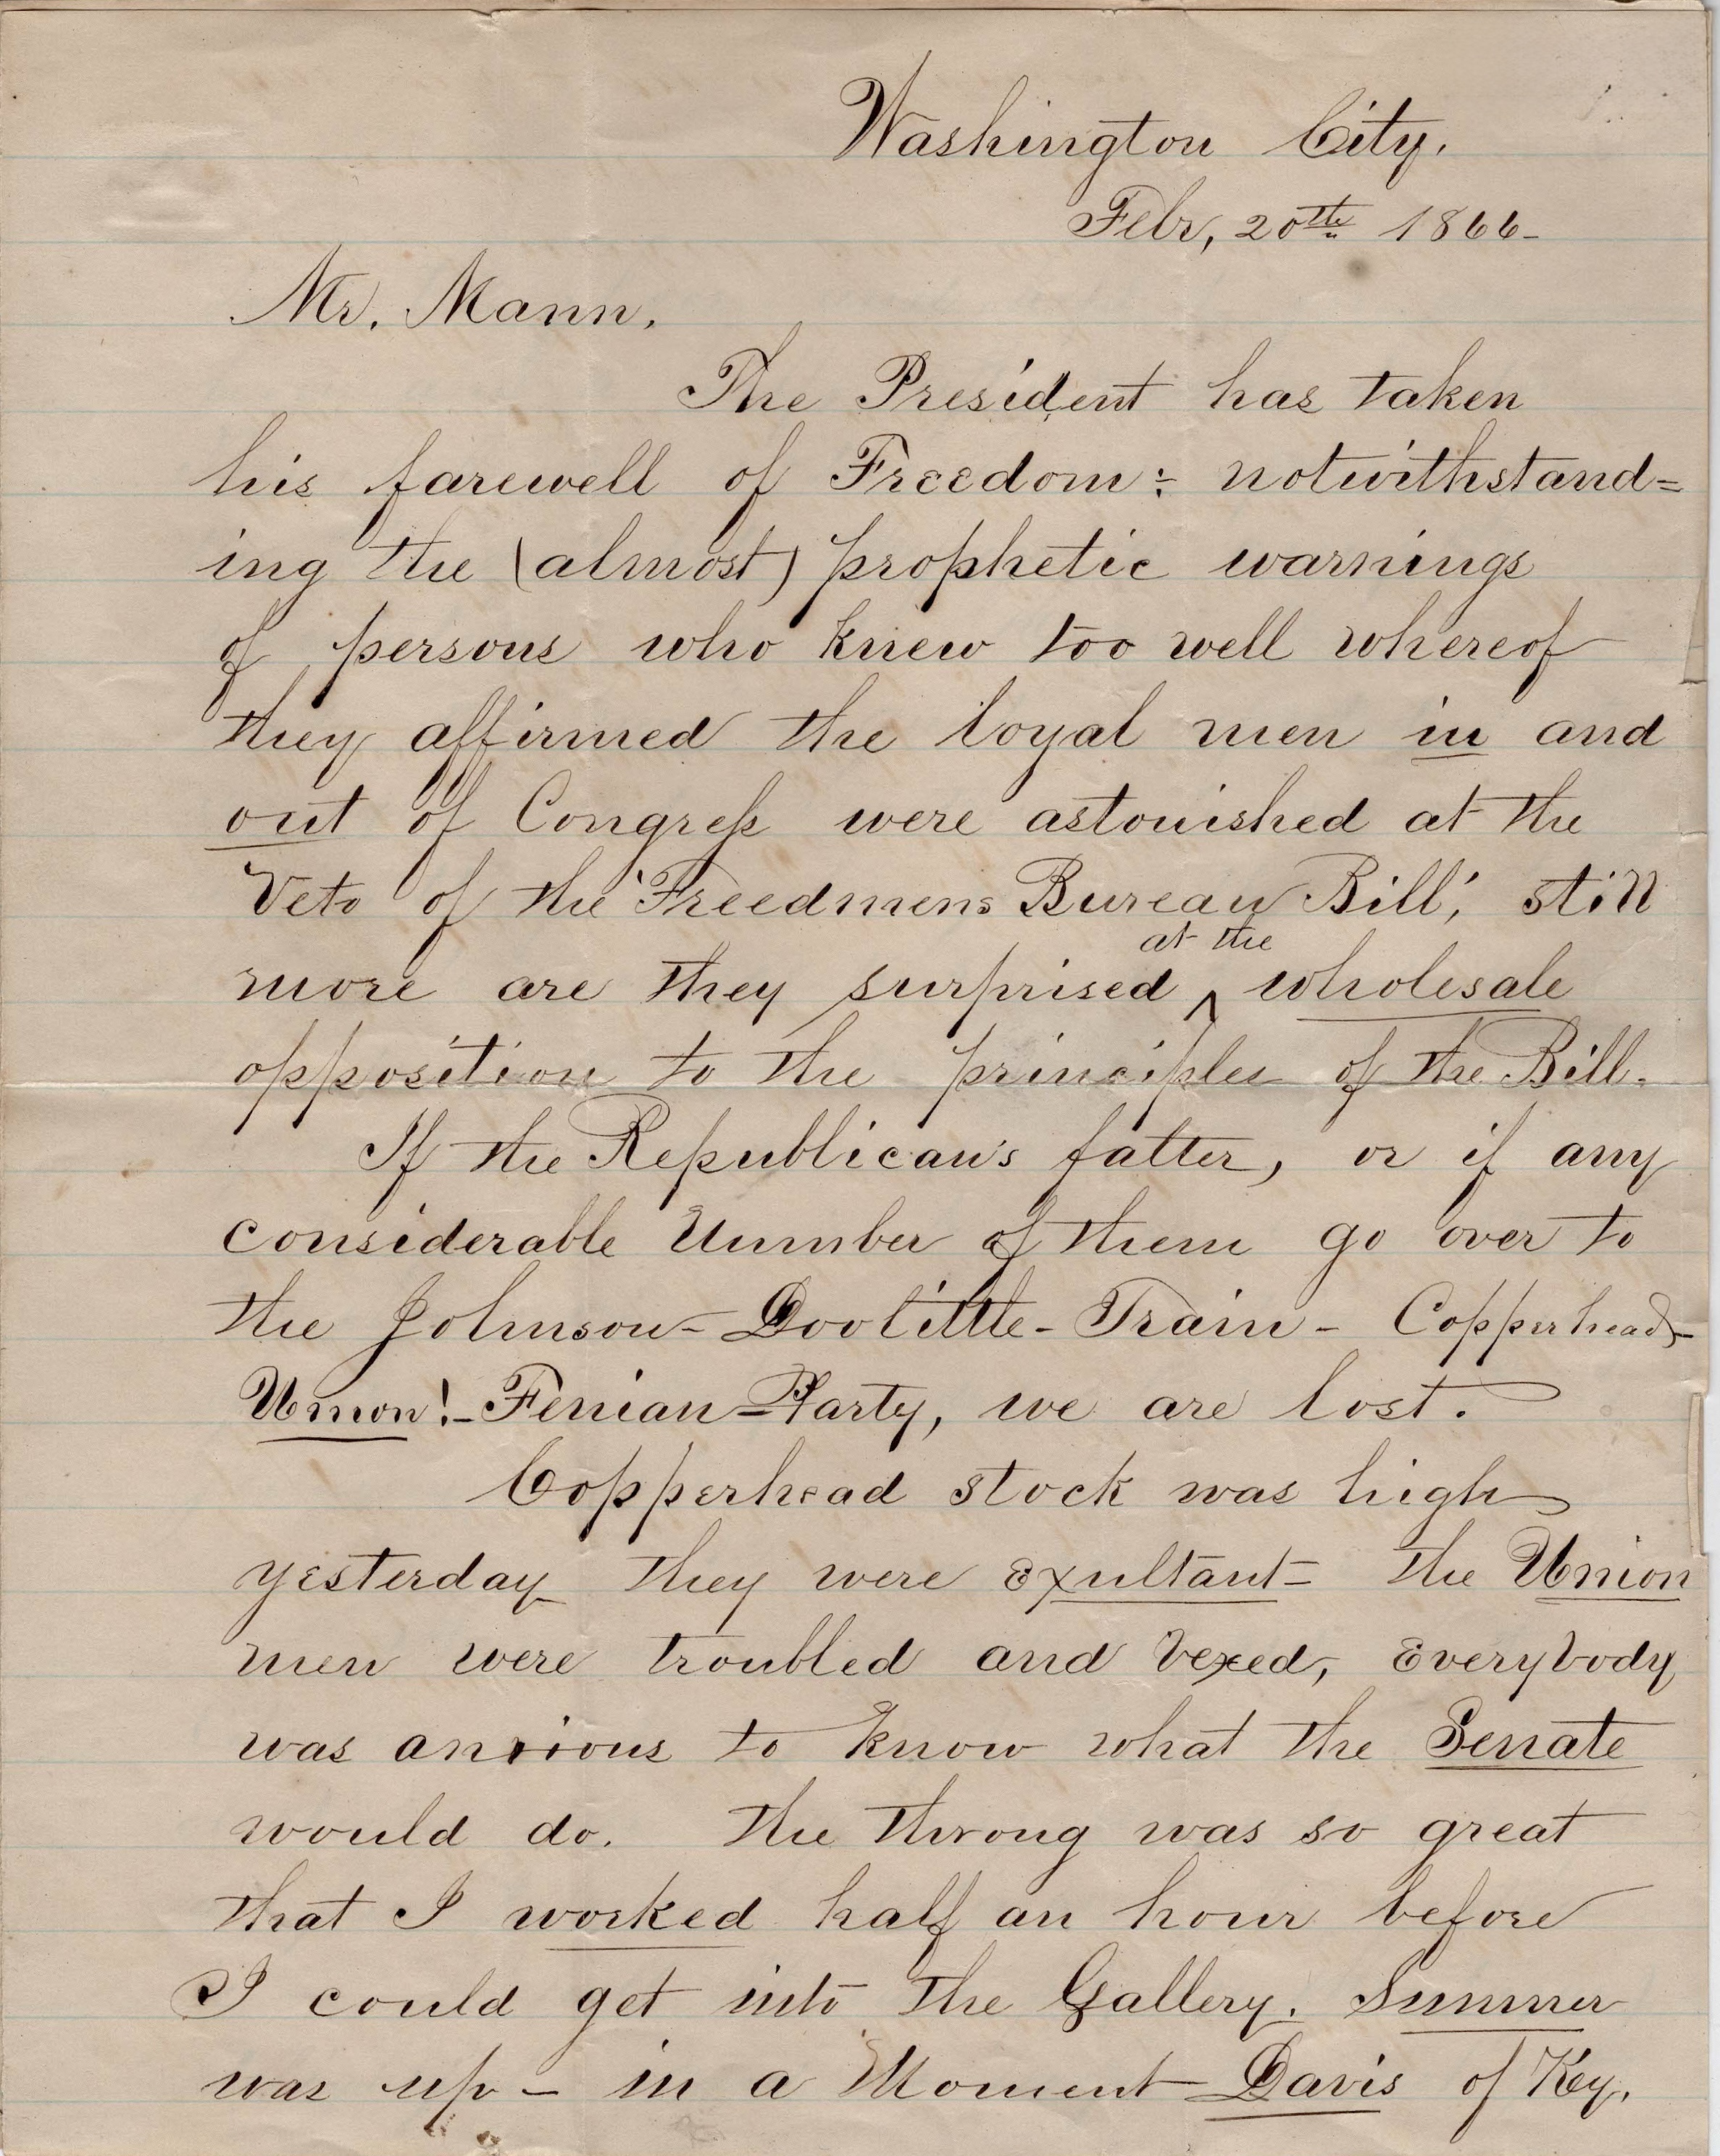 Washington City.
Febr, 20th 1866-
Mr. Mann.
The President has taken
his farewell of Freedom: notwithstand=
ing the (almost) prophetic warnings
of persons who knew too well whereof
they affirmed the loyal men in and
out of Congress were astonished at the
Veto of the 'Freedmens Bureau Bill', still
at the
more are they surprised ^ wholesale
opposition to the principles of the Bill.
If the Republican's falter, or if any
considerable Number of them go over to
the Johnson-Doolittle-Train-Copperhead-
Union!-Fenian-Party, we are lost.
Copperhead stock was high
yesterday they were exultant- the Union
men were troubled and vexed, everybody
was anxious to know what the Senate
would do. The throng was so great
that I worked half an hour before
I could get into the Gallery. Sumner
was up - in a Moment Davis of Key.